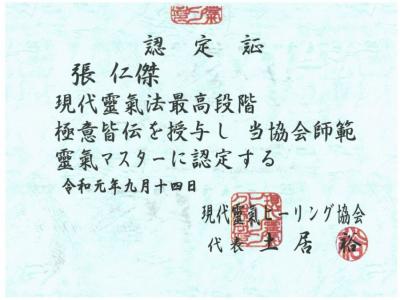 認定証
張 仁傑
現代靈氣法最高段階
極意皆伝を授与し 当協会師範
靈氣マスターに認定する
令和元年九月十四日
現代靈氣ヒーリング協会
代表 土居 裕